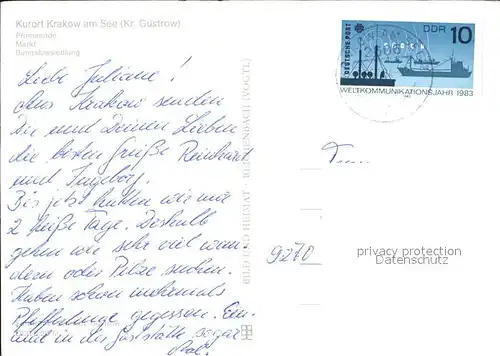 Kurort Krakow am See (Kr. Güstrow)
Promenade
Markt
Bungalowsiedlung
DEUTSCHE POST
DDR 10
WELTKOMMUNIKATIONSJAHR 1983
Liebe Juliane!
Aus Krakow senden
Dir und Deinen Lieben
die besten Grüße Reinhard
und Ingeborg.
Bis jetzt hatten wir nur
2 heiße Tage. Deshalb
gehen wir sehr viel wan-
dern oder Pilze suchen.
Haben schon mehrmals
Pfifferlinge gegessen. Ein-
mal in der Gaststätte sogar
BILD UND HEIMAT REICHENBACH (VOGTL)
9270
privacy protection
Datenschutz